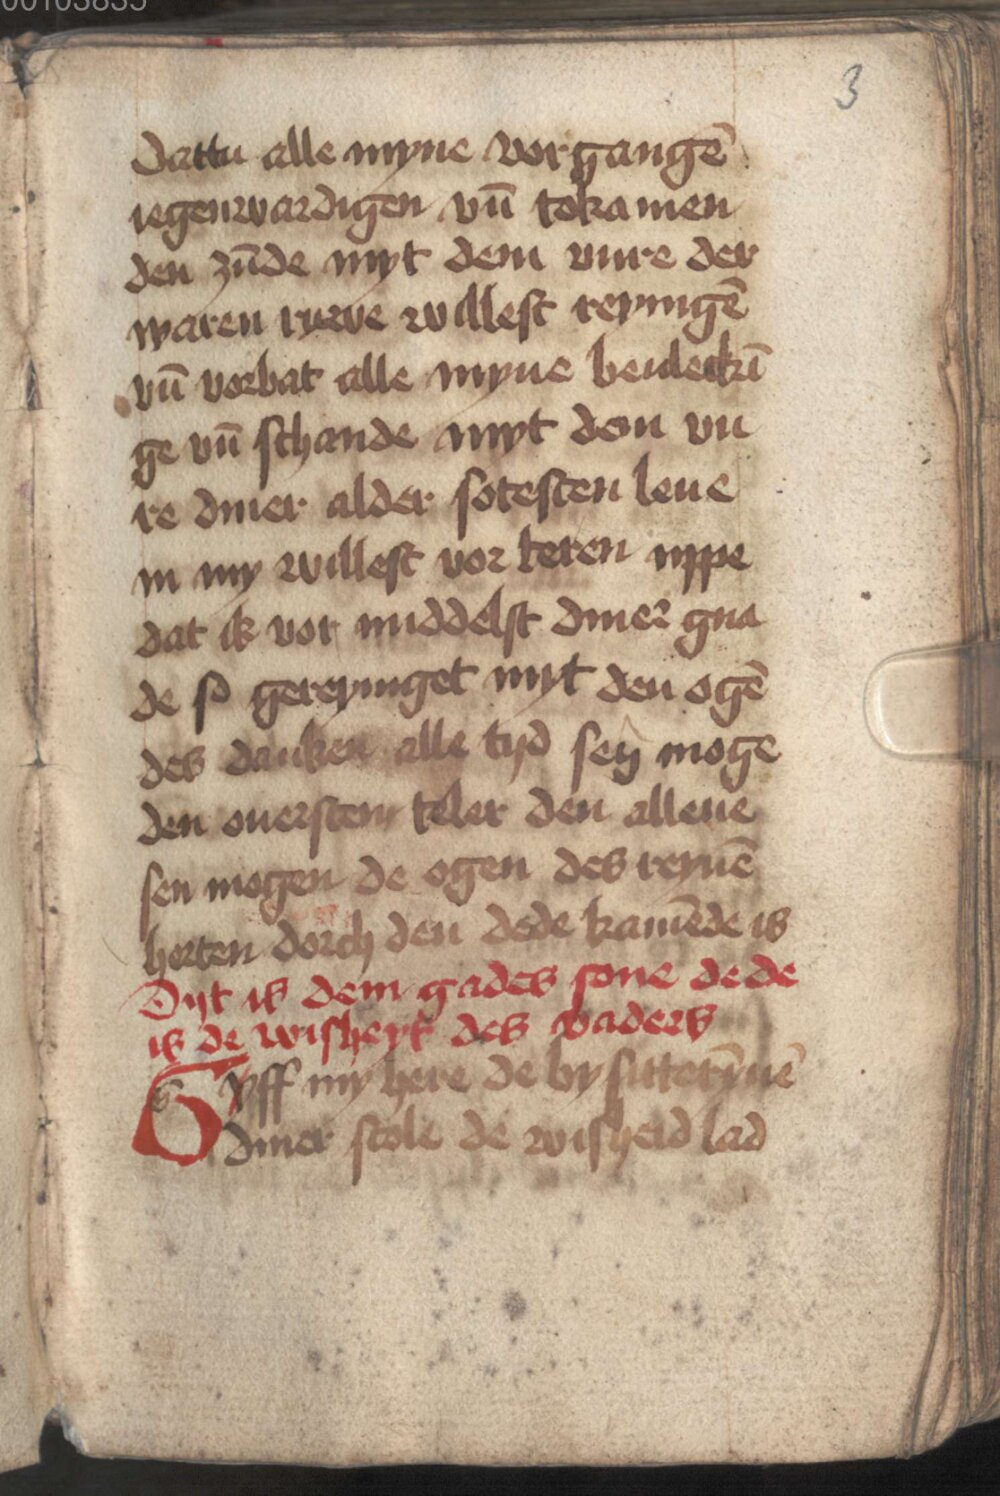 00103835
3
Dattu alle myne vorgangē
iegenwardigen vn̄ tokamen
den zūde myt dem vure der
waren ruwe willest reyngē
vn̄ vorbat alle myne bevleckī
ge vn̄ schande myt dem vu
re diner alder sotesten leue
in my willest vor teren uppe
dat ik vor middelst diner gna
de so gereynget myt den ogē
des danken alle tyd sen moge
den ouersten teler den allene
sen mogen de ogen des reynē
herten dorch den dede kamēde is
Dyt is dem gades sone dede
is de wisheyt des vaders
Gyff my here de by sitterȳnē
diner stole de wisheid lad